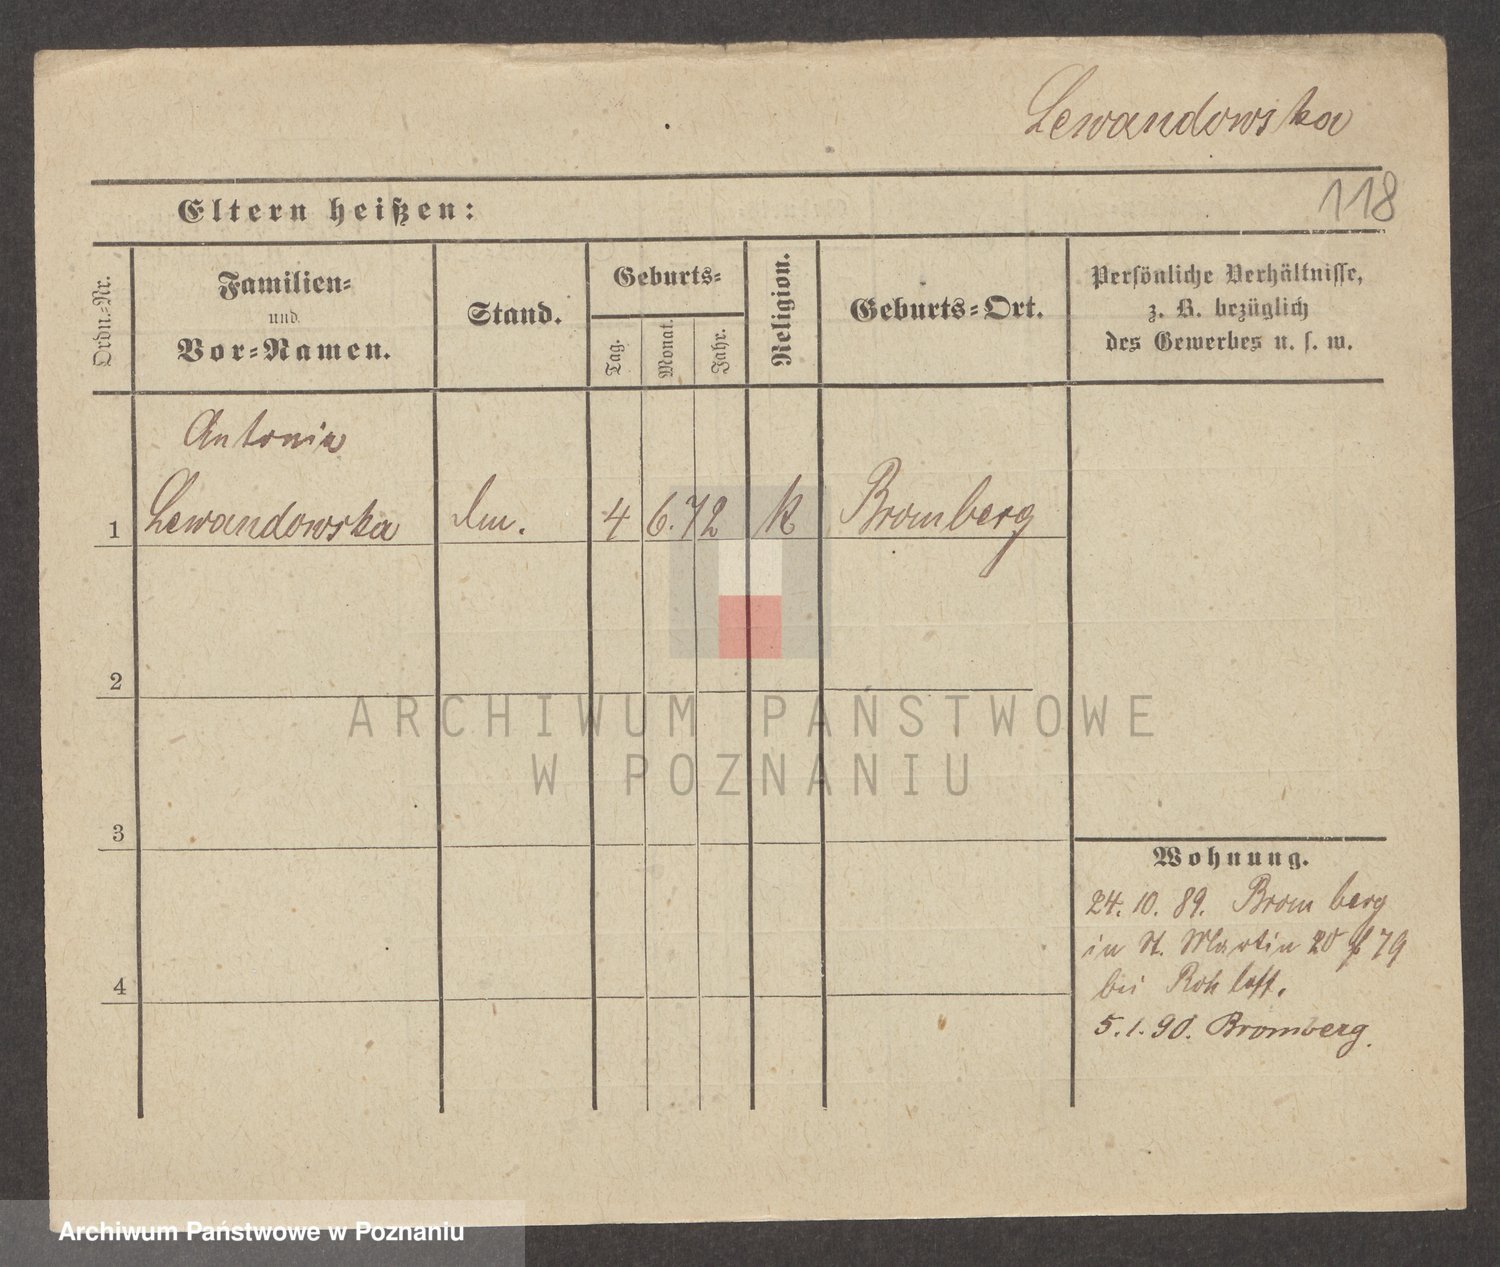 Lewandowska
118
Eltern heißen:
Ordn.-Nr.
Familien-
und
Vor-Namen.
Stand.
Geburts-
Tag.
Monat.
Jahr.
Religion.
Geburts-Ort.
Persönliche Verhältnisse,
z. B. bezüglich
des Gewerbes u. s. w.
Antonia
1 Lewandowska 4 6. 72 k Bromberg
2
3
4
Wohnung.
24. 10. 89. Bromberg
in St. Martin 20 79
bei Rohloff.
5. 1. 90. Bromberg.
ARCHIWUM PAŃSTWOWE
W POZNANIU
Archiwum Państwowe w Poznaniu